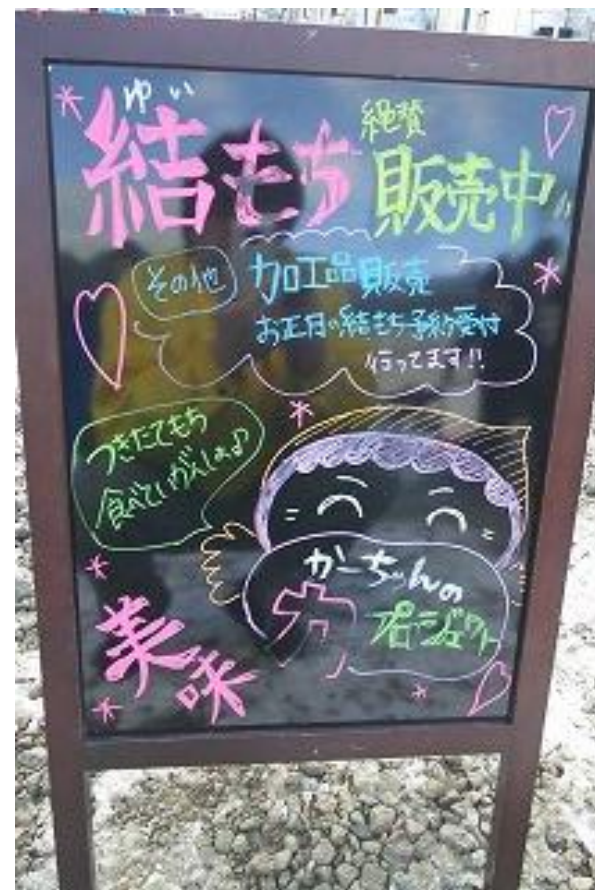 ゆい
結もち 絶賛
販売中
その他 加工品販売
お正月の結もち予約受付
行ってます!!
つきたてもち
食べていがんしょ♪
かーちゃんの
力 プロジェクト
美味